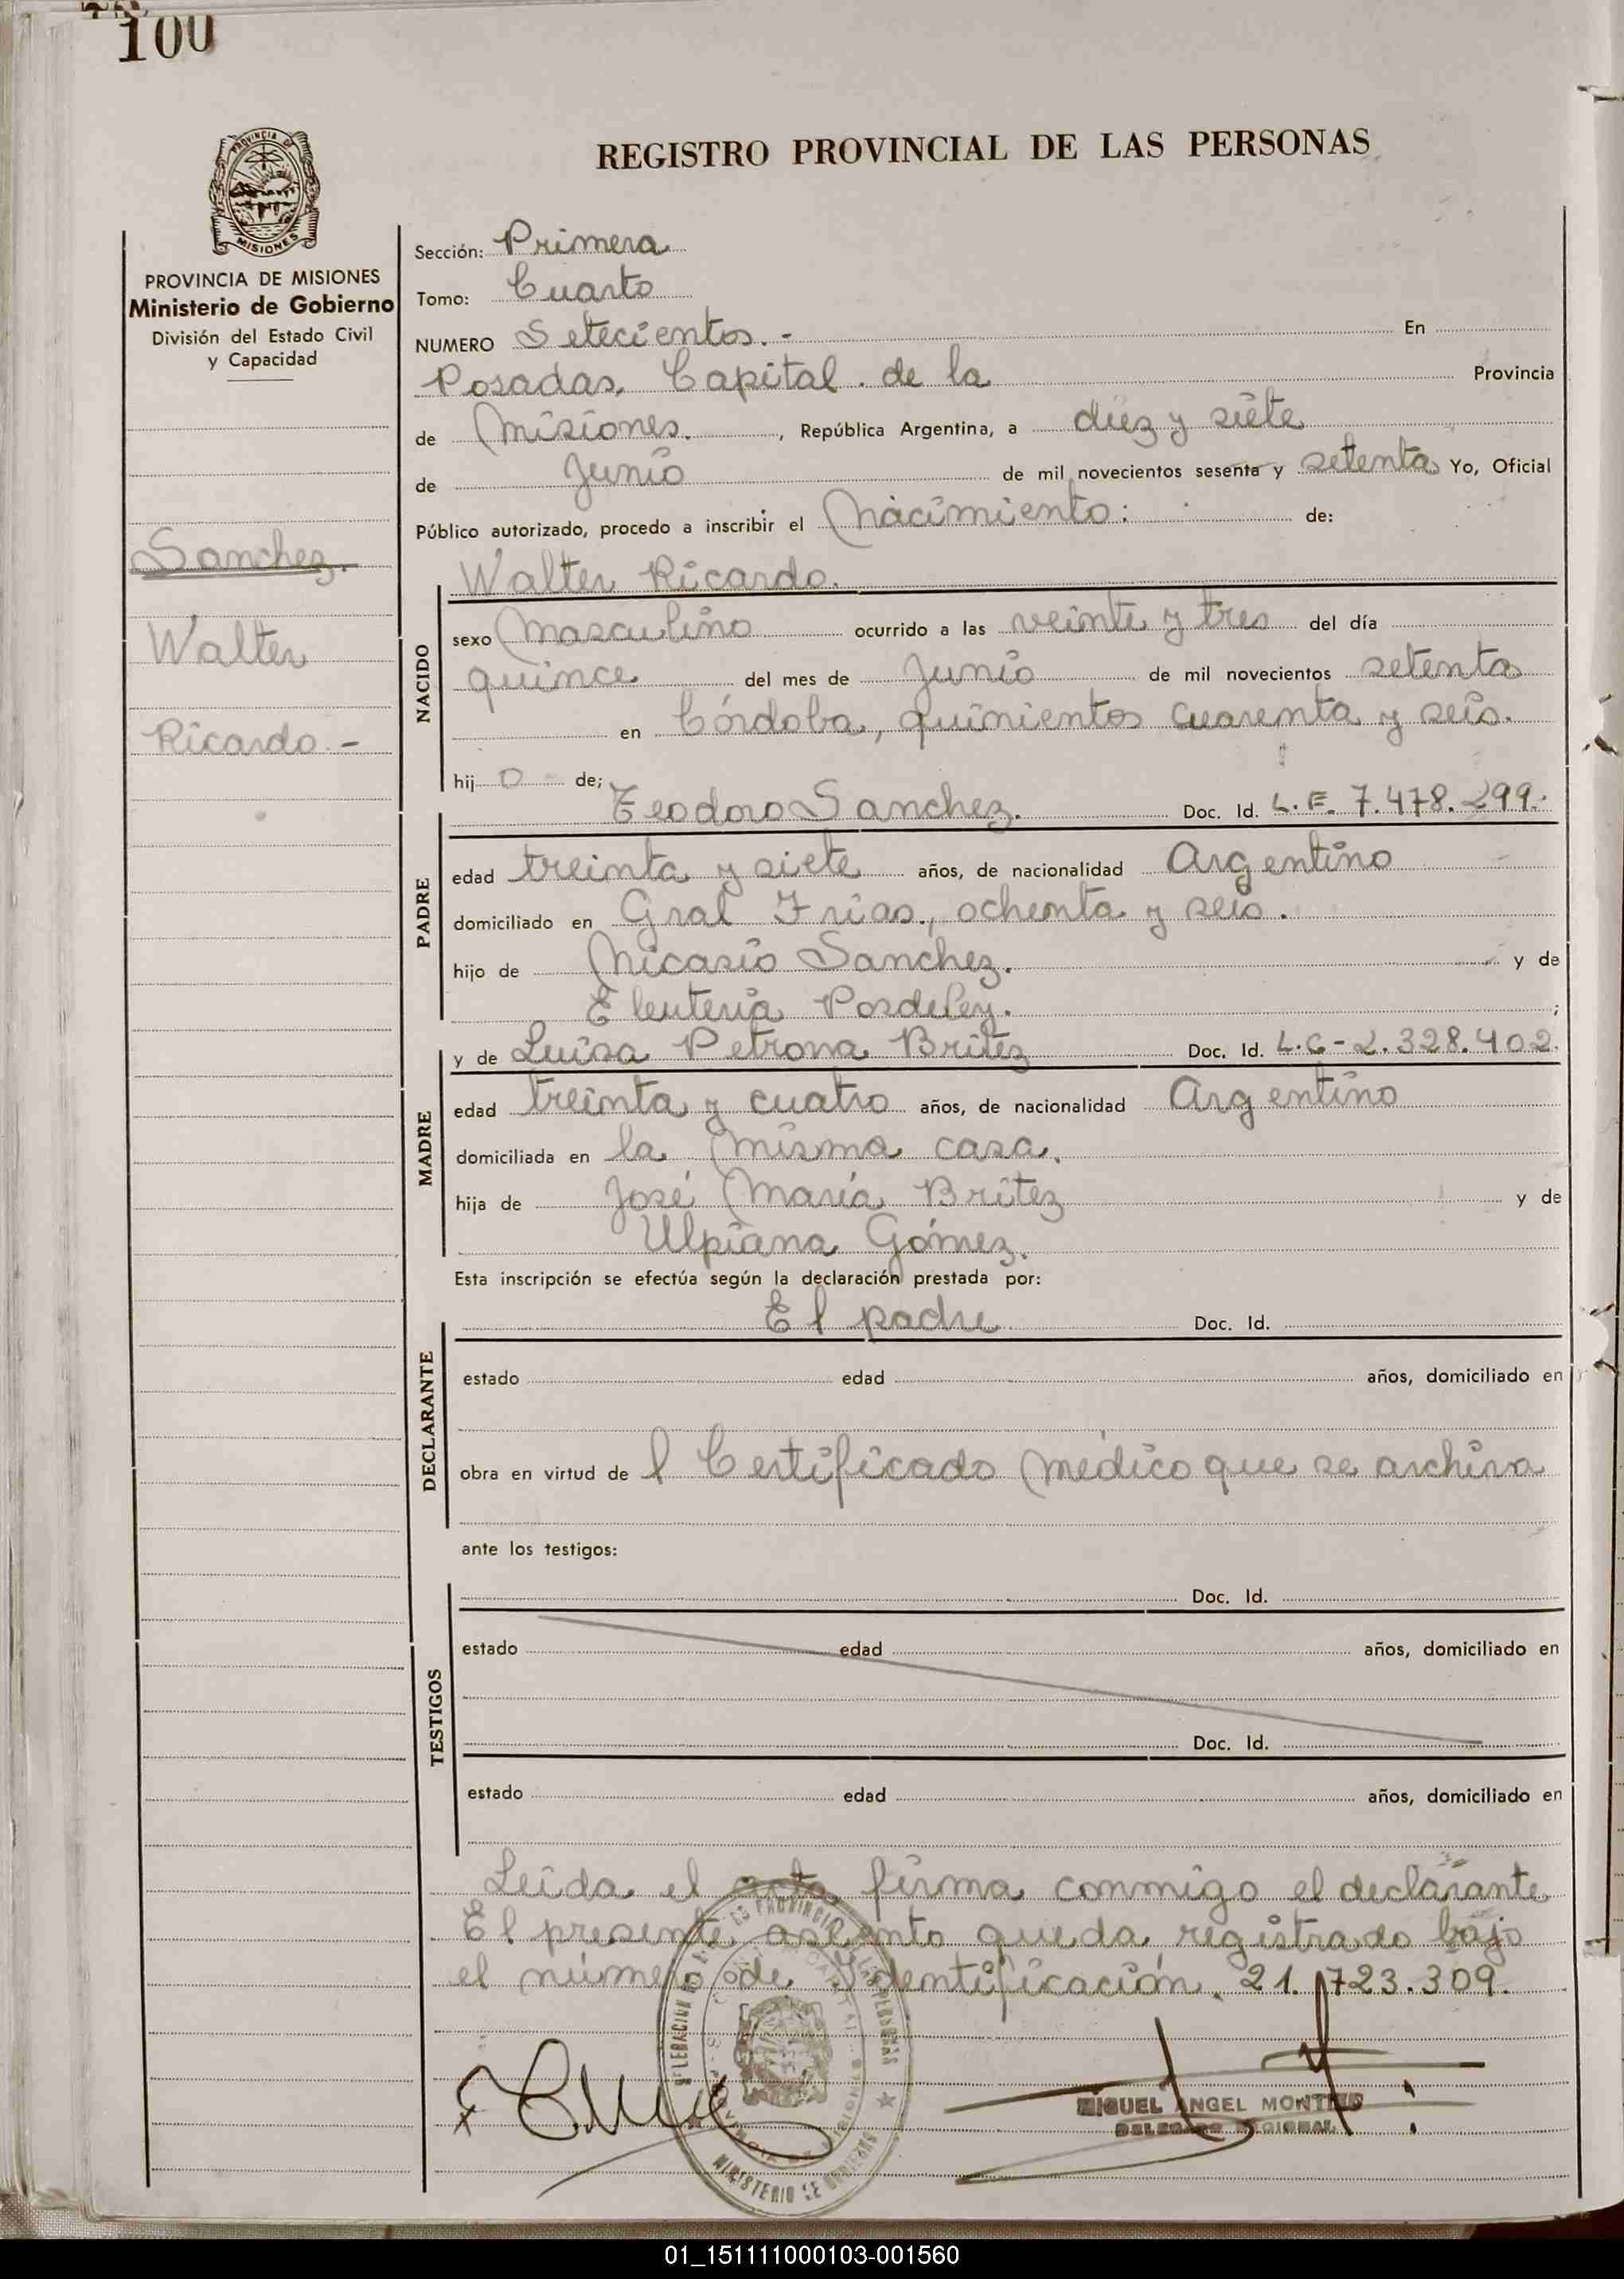 100
REGISTRO PROVINCIAL DE LAS PERSONAS
PROVINCIA DE
MISIONES
PROVINCIA DE MISIONES
Ministerio de Gobierno
División del Estado Civil
y Capacidad
Sanchez.
Walter
Ricardo.-
Sección: Primera
Tomo: Cuarto
NUMERO Setecientos.- En
Posadas, Capital de la Provincia
de Misiones, República Argentina, a diez y siete
de Junio de mil novecientos sesenta y setenta Yo, Oficial
Público autorizado, procedo a inscribir el Nacimiento: de:
Walter Ricardo.
NACIDO
sexo Masculino ocurrido a las veinte y tres del día
quince del mes de Junio de mil novecientos setenta
en Córdoba, quinientos cuarenta y seis.
hijo de;
Teodoro Sanchez. Doc. Id. L.E. 7.478.299.
PADRE
edad treinta y siete años, de nacionalidad Argentino
domiciliado en Gral Frias, ochenta y seis.
hijo de Nicasio Sanchez. y de
Eleuteria Posdeley. ;
y de Luisa Petrona Britez Doc. Id. L.C-2.328.402.
MADRE
edad treinta y cuatro años, de nacionalidad Argentino
domiciliada en la misma casa.
hija de José María Britez y de
Ulpiana Gómez.
Esta inscripción se efectúa según la declaración prestada por:
El padre Doc. Id.
DECLARANTE
estado edad años, domiciliado en
obra en virtud de l Certificado Médico que se archiva
ante los testigos:
Doc. Id.
TESTIGOS
estado edad años, domiciliado en
Doc. Id.
estado edad años, domiciliado en
Leida el acta firma conmigo el declarante
El presente asiento queda registrado bajo
el número de Identificación. 21.723.309.
MIGUEL ANGEL MONTIEL
DELEGADO REGIONAL
MINISTERIO DE GOBIERNO
01_151111000103-001560